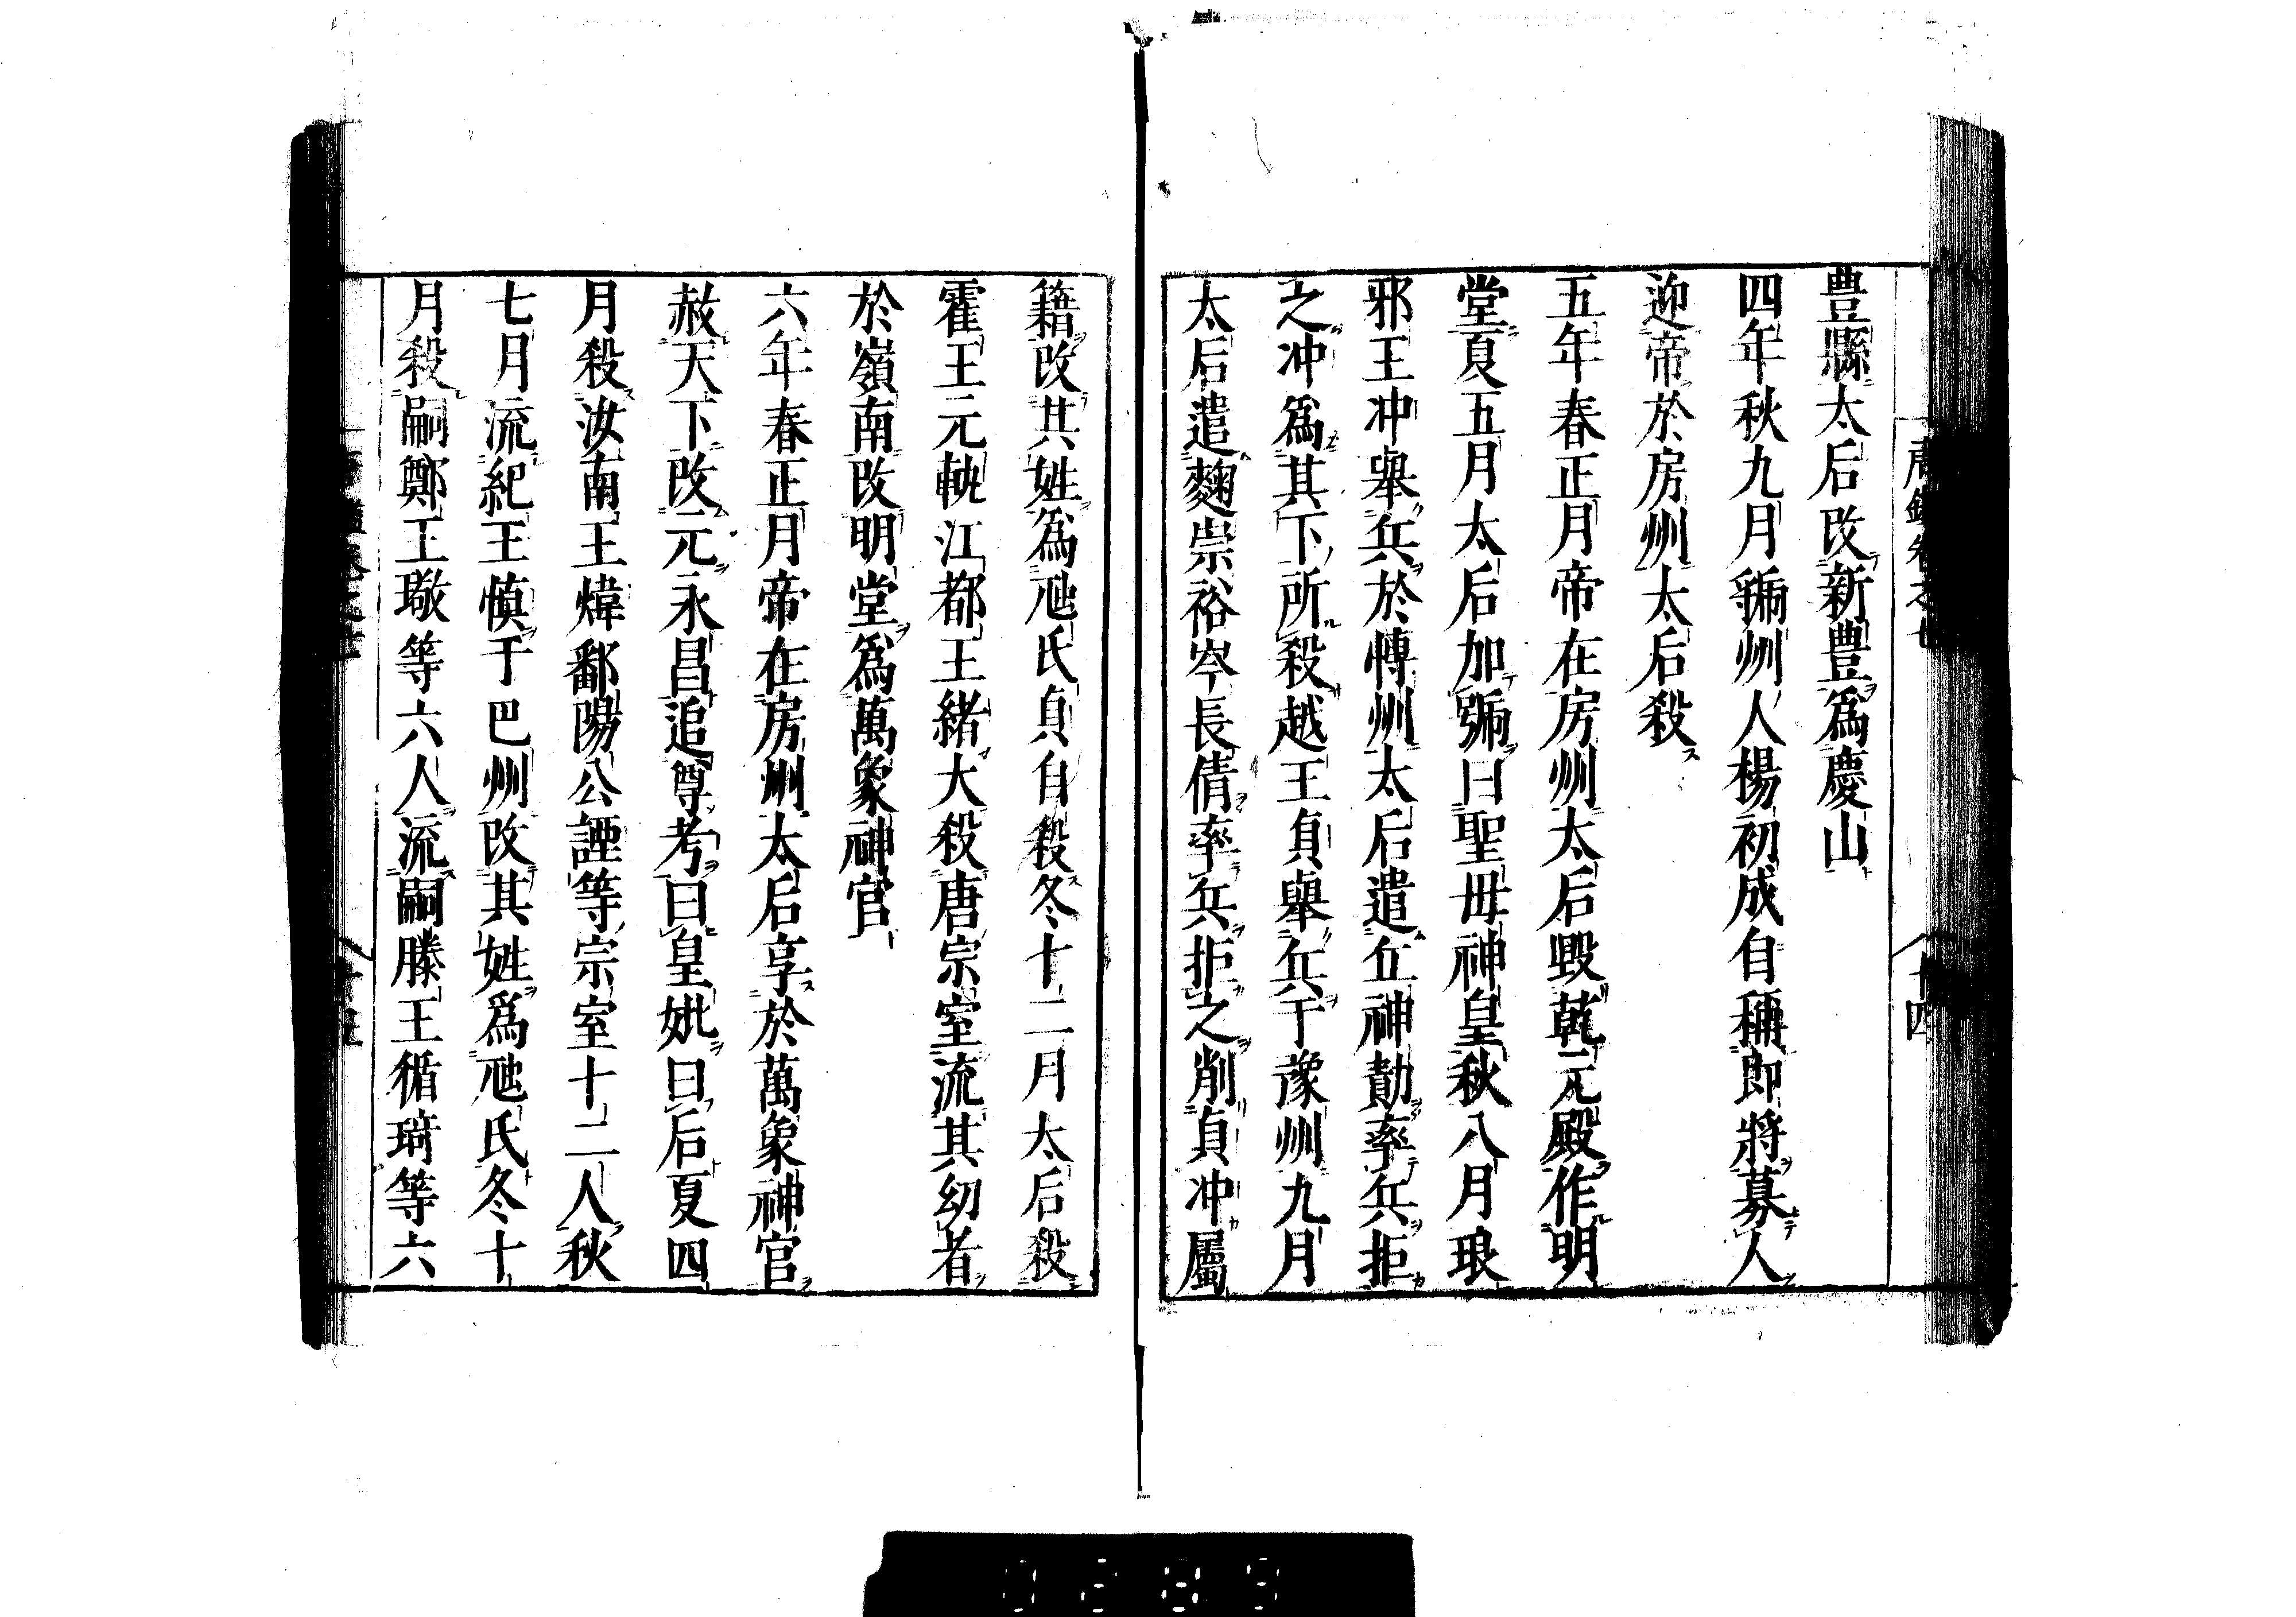 豊縣太后改新豊爲慶山
四年秋九月虢州人楊初成自稱郎將募人
迎帝於房州太后殺
五年春正月帝在房州太后毀乾元殿作明
堂夏五月太后加號曰聖母神皇秋八月琅
邪王冲舉兵於愽州太后遣丘神勣率兵拒
之冲爲其下所殺越王貞舉兵于豫州九月
太后遣麴崇裕岑長倩率兵拒之削貞冲屬
籍改其姓爲虺氏貞自殺冬十二月太后殺
霍王元軌江都王緒大殺唐宗室流其幼者
於嶺南改明堂爲萬象神宮
六年春正月帝在房州太后享於萬象神宮
赦天下改元永昌追尊考曰皇妣曰后夏四
月殺汝南王煒鄱陽公諲等宗室十二人秋
七月流紀王慎于巴州改其姓爲虺氏冬十
月殺嗣鄭王璥等六人流嗣滕王循琦等六